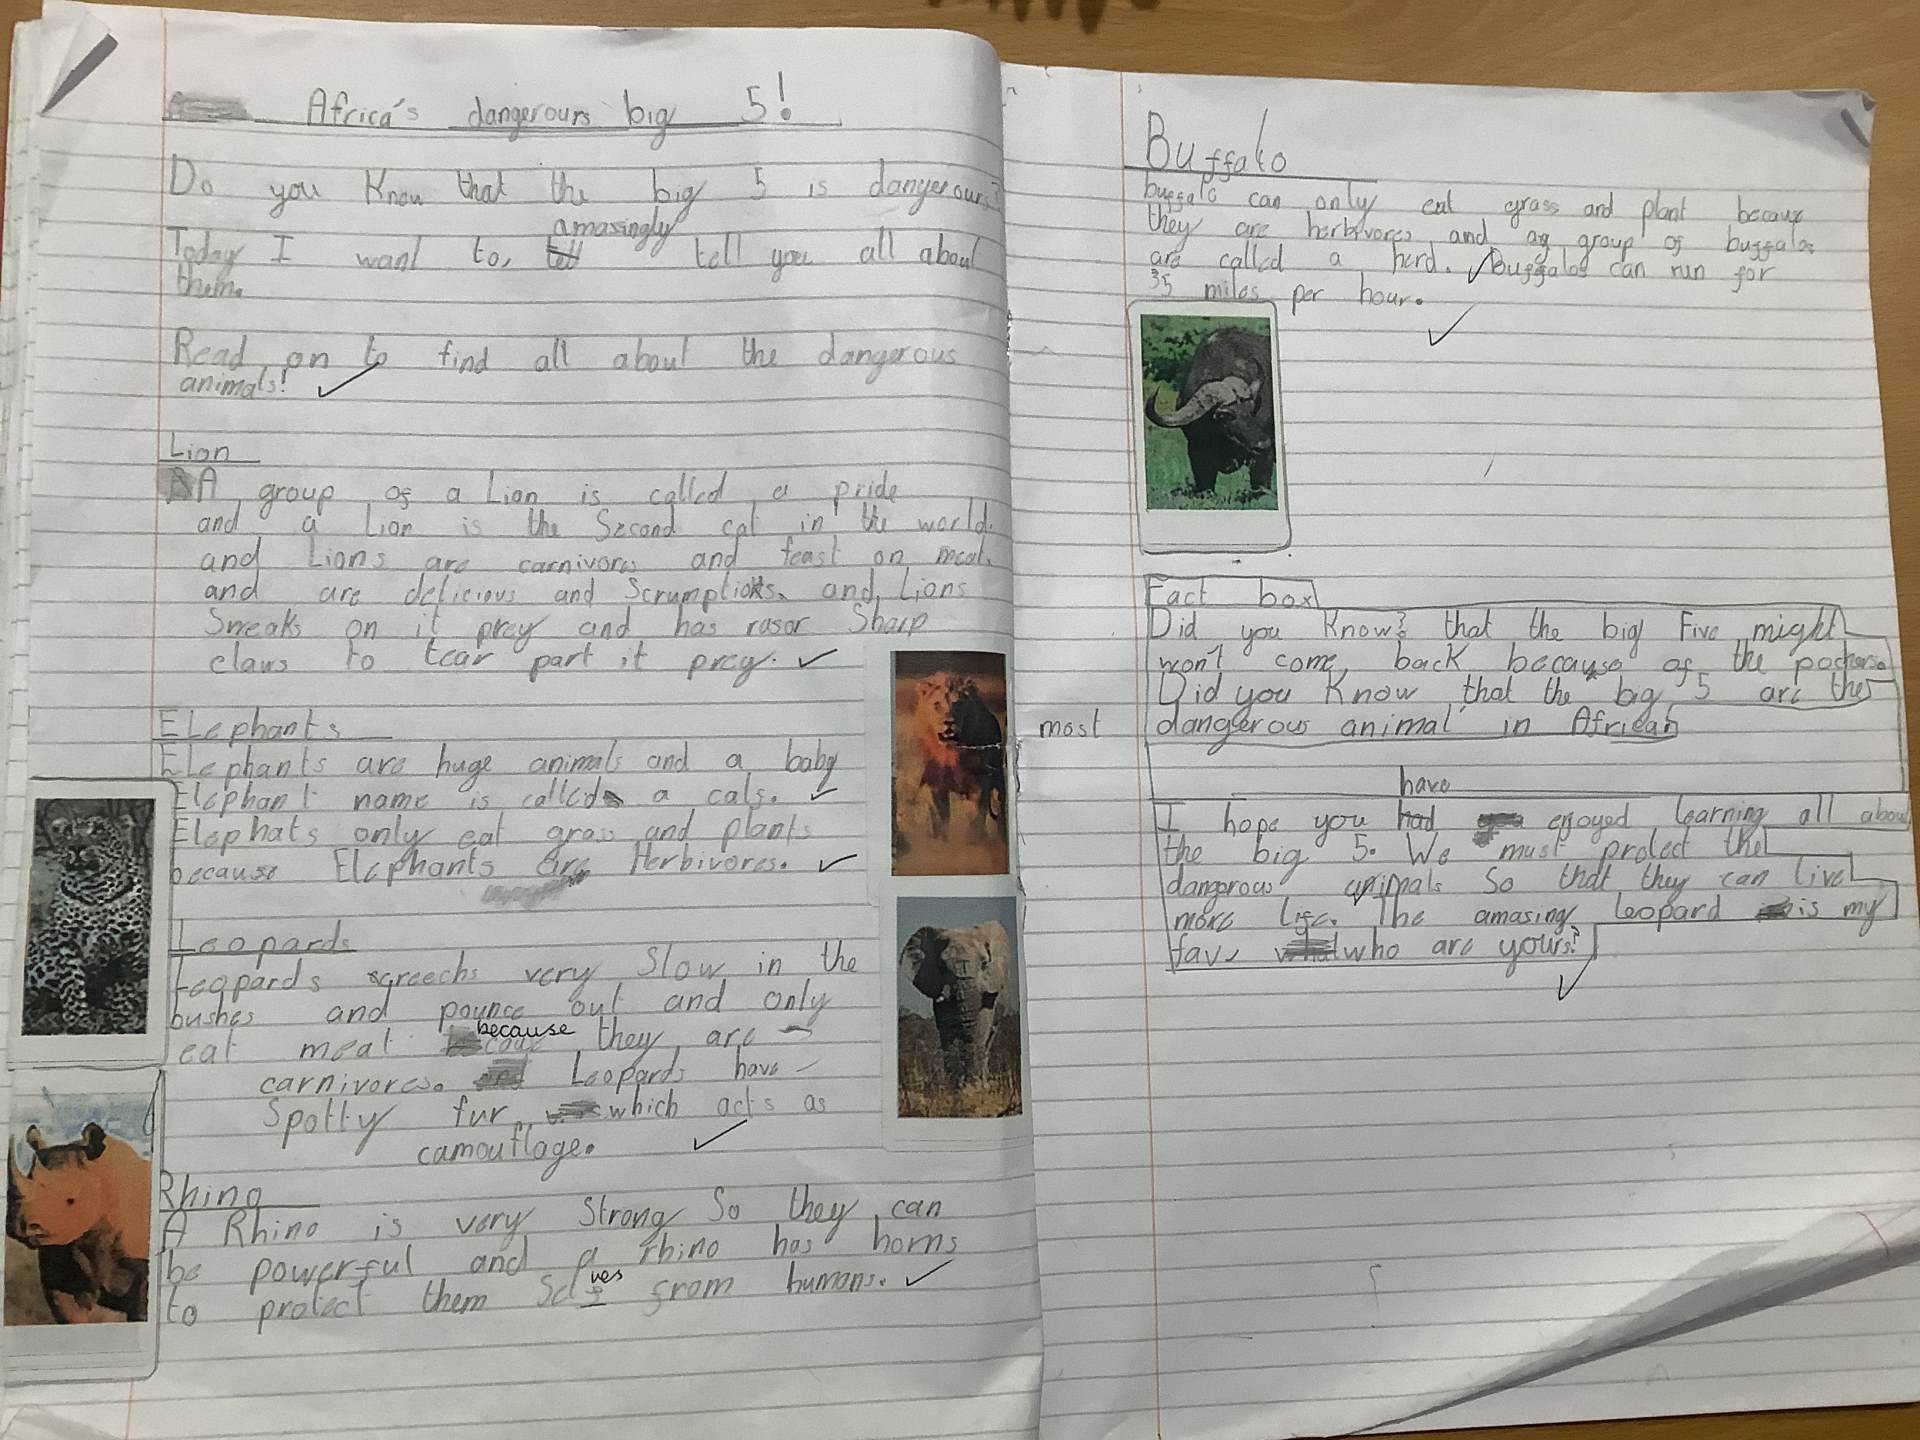 Africa's dangerours big 5!
Do you Know that the big 5 is dangerours?
amasingly
Today I want to, tell you all about
them.
Read on to find all about the dangerous
animals!
Lion
A group of a Lion is called a pride
and a Lion is the Second cat in the world.
and Lions are carnivores and feast on meat.
and are delicious and Scrumptious. and Lions
Sneaks on it prey and has rasor Sharp
claws to tear part it prey.
ELephants
Elephants are huge animals and a baby
Elephant name is called a calf.
Elephats only eat grass and plants
because Elephants are Herbivores.
Leopards
Leopards creechs very Slow in the
bushes and pounce out and only
eat meat because they are
carnivores. Leopards have
Spotty fur which acts as
camouflage.
Rhino
A Rhino is very Strong So they can
be powerful and a rhino has horns
to protect them Selves from humans.
Buffalo
buffalo can only eat grass and plant because
they are herbivores and a group of buffalos
are called a herd. Buffalos can run for
35 miles per hour.
Fact box
Did you Know? that the big Five might
won't come back because of the pochers.
Did you Know that the big 5 are the
most dangerous animal in African
have
I hope you had enjoyed learning all about
the big 5. We must protect the
dangerous animals So that they can live
more life. The amasing leopard is my
fav, who are yours?